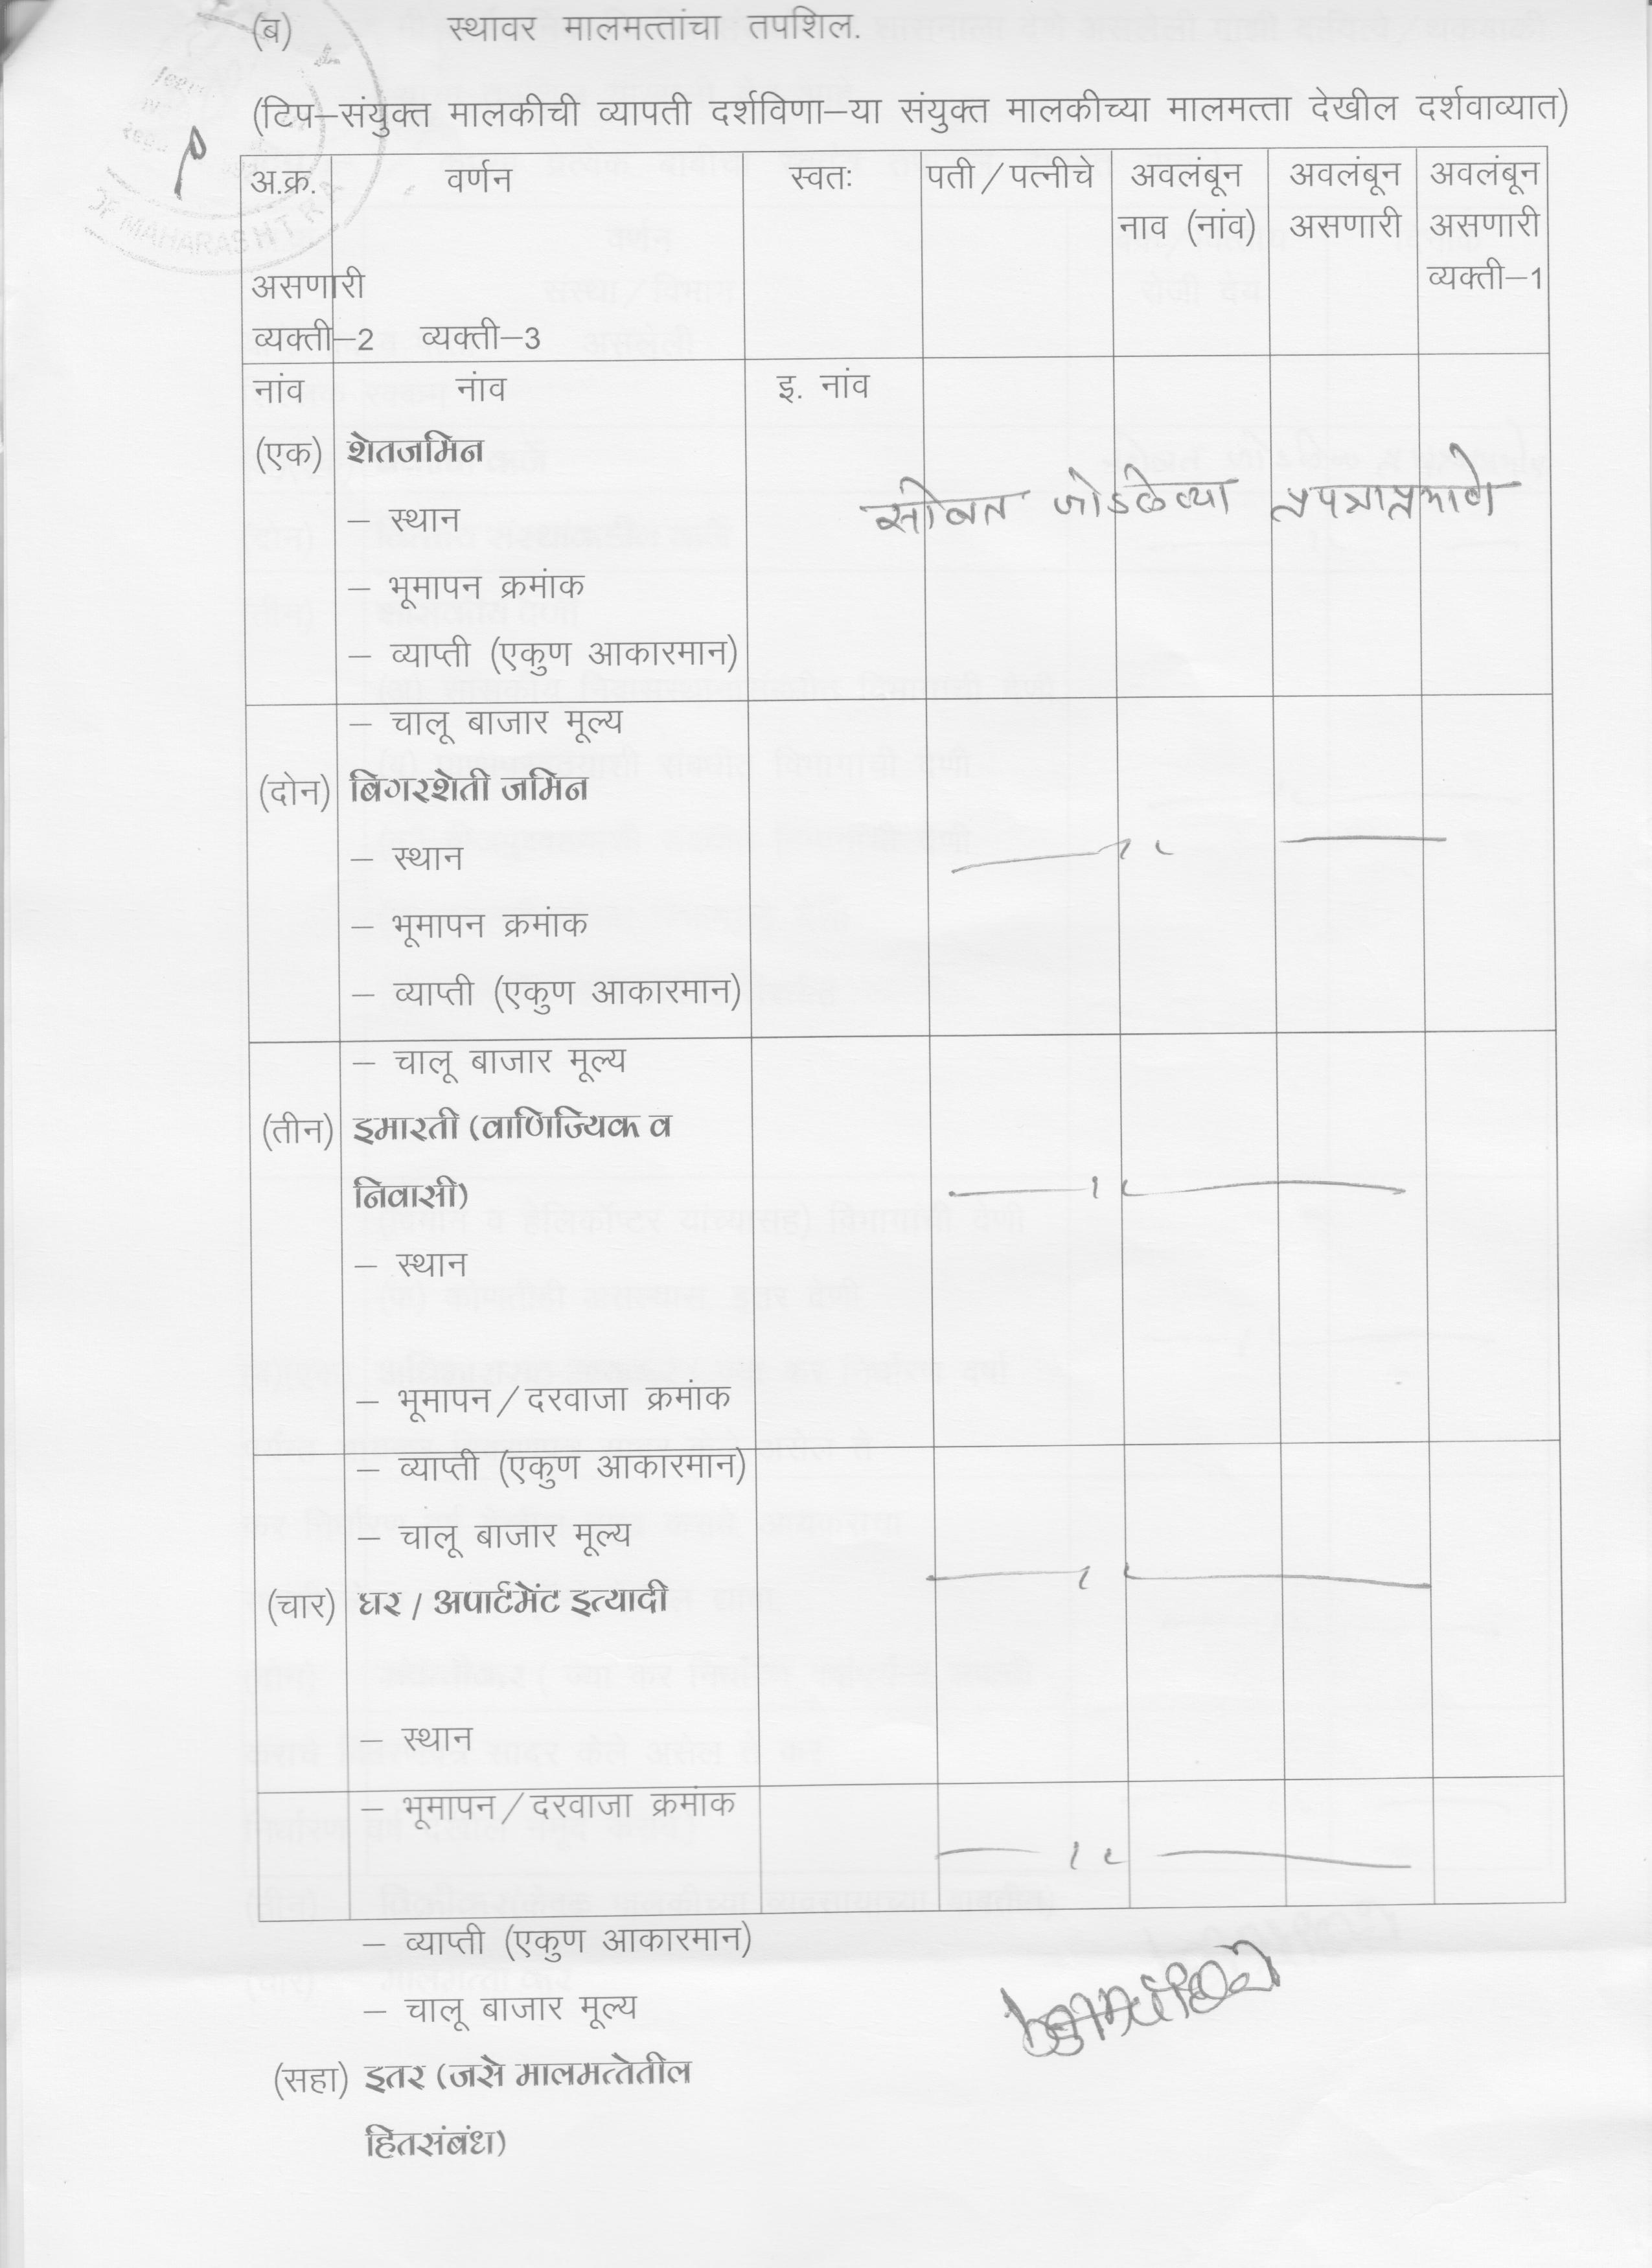 (ब) स्थावर मालमत्तांचा तपशिल.
(टिप–संयुक्त मालकीची व्यापती दर्शविणा–या संयुक्त मालकीच्या मालमत्ता देखील दर्शवाव्यात)
अ.क्र. वर्णन स्वतः पती/पत्नीचे अवलंबून अवलंबून अवलंबून
नाव (नांव) असणारी असणारी
असणारी व्यक्ती–1
व्यक्ती–2 व्यक्ती–3
नांव नांव इ. नांव
(एक) शेतजमिन
सोबत जोडलेल्या प्रपत्राप्रमाणे
– स्थान
– भूमापन क्रमांक
– व्याप्ती (एकुण आकारमान)
– चालू बाजार मूल्य
(दोन) बिगरशेती जमिन
– स्थान
– भूमापन क्रमांक
– व्याप्ती (एकुण आकारमान)
– चालू बाजार मूल्य
(तीन) इमारती (वाणिज्यिक व
निवासी)
– स्थान
– भूमापन/दरवाजा क्रमांक
– व्याप्ती (एकुण आकारमान)
– चालू बाजार मूल्य
(चार) घर / अपार्टमेंट इत्यादी
– स्थान
– भूमापन/दरवाजा क्रमांक
– व्याप्ती (एकुण आकारमान)
– चालू बाजार मूल्य
(सहा) इतर (जसे मालमत्तेतील
हितसंबंध)
MAHARASHTRA